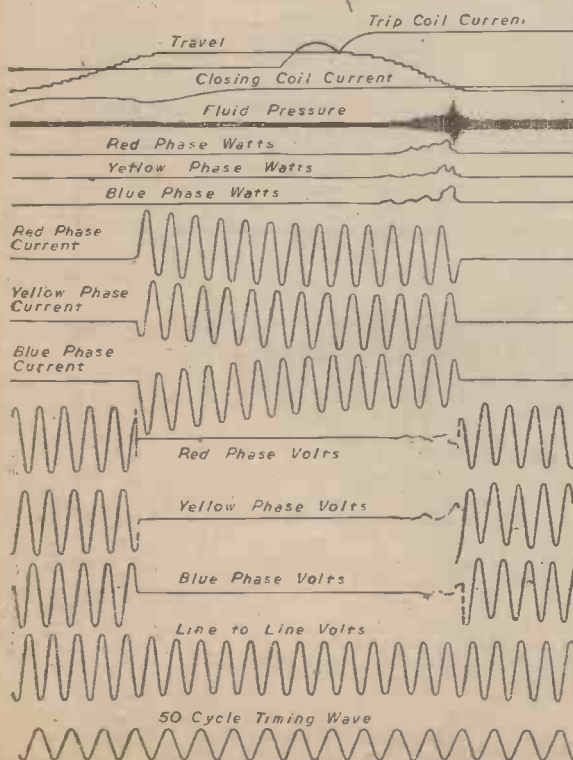 Trip Coil Current
Travel
Closing Coil Current
Fluid Pressure
Red Phase Watts
Yellow Phase Watts
Blue Phase Watts
Red Phase
Current
Yellow Phase
Current
Blue Phase
Current
Red Phase Volts
Yellow Phase Volts
Blue Phase Volts
Line to Line Volts
50 Cycle Timing Wave